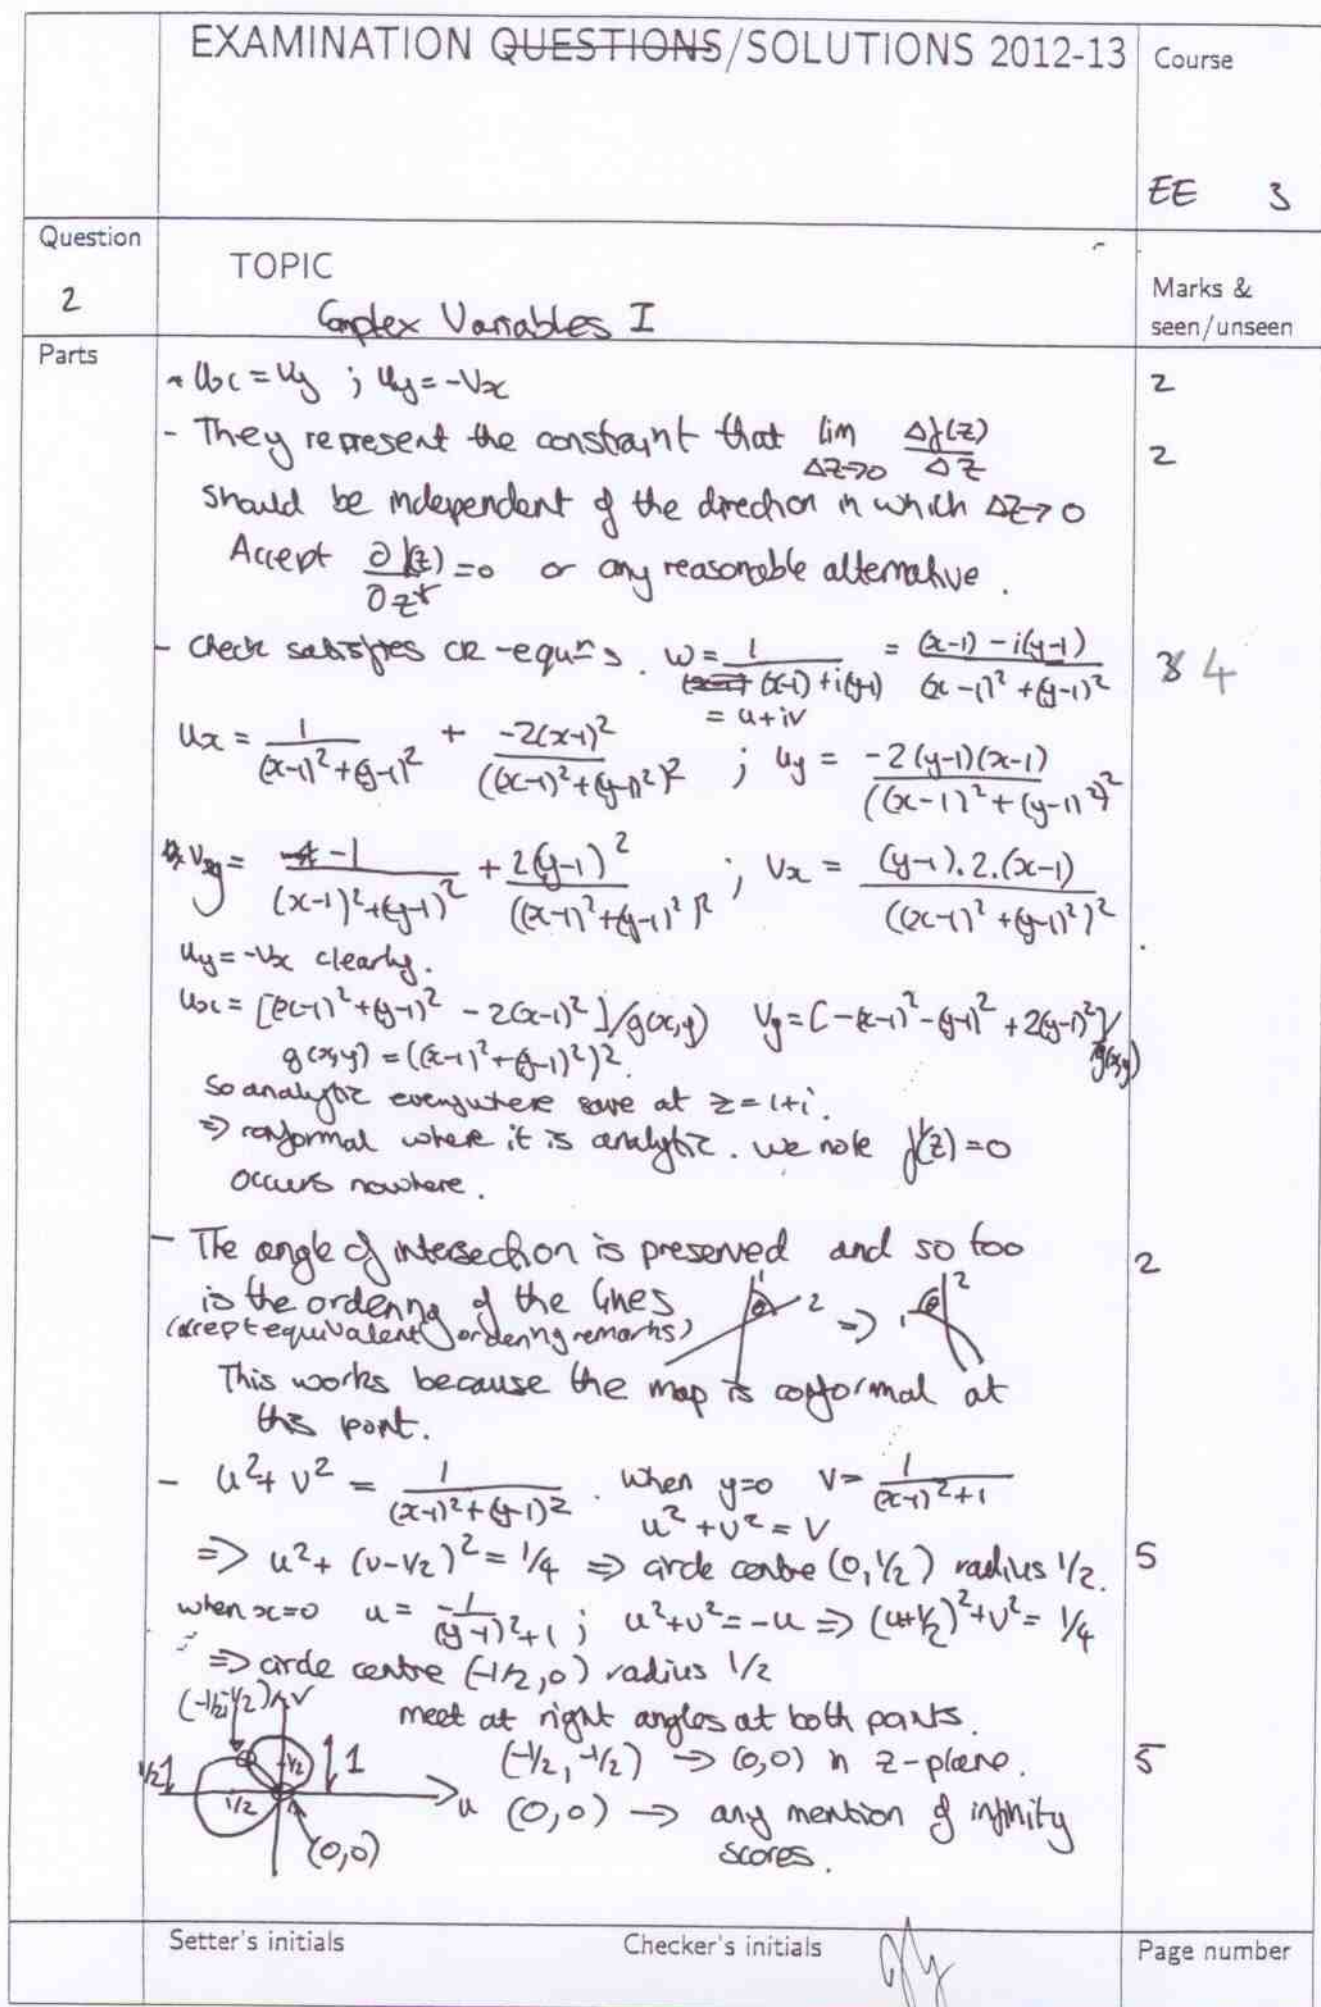 EXAMINATION QUESTIONS/SOLUTIONS 2012-13
Course
EE 3
Question
2
TOPIC
Complex Variables I
Marks &
seen/unseen
Parts
- Ux = Vy ; Uy = -Vx
2
- They represent the constraint that lim Δz→0 Δf(z)/Δz
2
should be independent of the direction in which Δz→0
Accept ∂f(z)/∂z* = 0 or any reasonable alternative.
- Check satisfies CR-equns. w = 1/((x-1)+i(y-1)) = ((x-1) - i(y-1))/((x-1)²+(y-1)²)
4
= u+iv
Ux = 1/((x-1)²+(y-1)²) + -2(x-1)²/((x-1)²+(y-1)²)² ; Uy = -2(y-1)(x-1)/((x-1)²+(y-1)²)²
Vy = -1/((x-1)²+(y-1)²) + 2(y-1)²/((x-1)²+(y-1)²)² ; Vx = (y-1).2.(x-1)/((x-1)²+(y-1)²)²
Uy = -Vx clearly.
Ux = [(x-1)²+(y-1)² - 2(x-1)²]/g(x,y) Vy = [-(x-1)²-(y-1)²+2(y-1)²]/g(x,y)
g(x,y) = ((x-1)²+(y-1)²)².
So analytic everywhere save at z=1+i.
=> conformal where it is analytic. We note f'(z)=0
occurs nowhere.
- The angle of intersection is preserved and so too
2
is the ordering of the lines
1 θ 2 => 1 θ 2
(accept equivalent ordering remarks)
This works because the map is conformal at
this point.
- u²+v² = 1/((x-1)²+(y-1)²). When y=0 v= 1/((x-1)²+1)
u²+v² = v
=> u² + (v-1/2)² = 1/4 => circle centre (0,1/2) radius 1/2.
5
when x=0 u = -1/((y-1)²+1) ; u²+v² = -u => (u+1/2)²+v² = 1/4
=> circle centre (-1/2,0) radius 1/2
(-1/2,1/2) v
meet at right angles at both points.
1/2 1/2 1/2 1 u
(-1/2, -1/2) → (0,0) in z-plane.
5
(0,0) → any mention of infinity
scores.
(0,0)
Setter's initials
Checker's initials
Page number